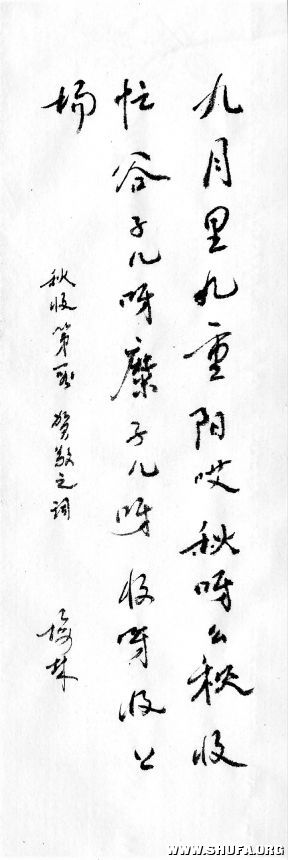 九月里九重阳哎秋呀么秋收
忙谷子儿呀糜子儿呀收呀收上
场
秋收第一段 贺敬之词
林
WWW.SHUFA.ORG